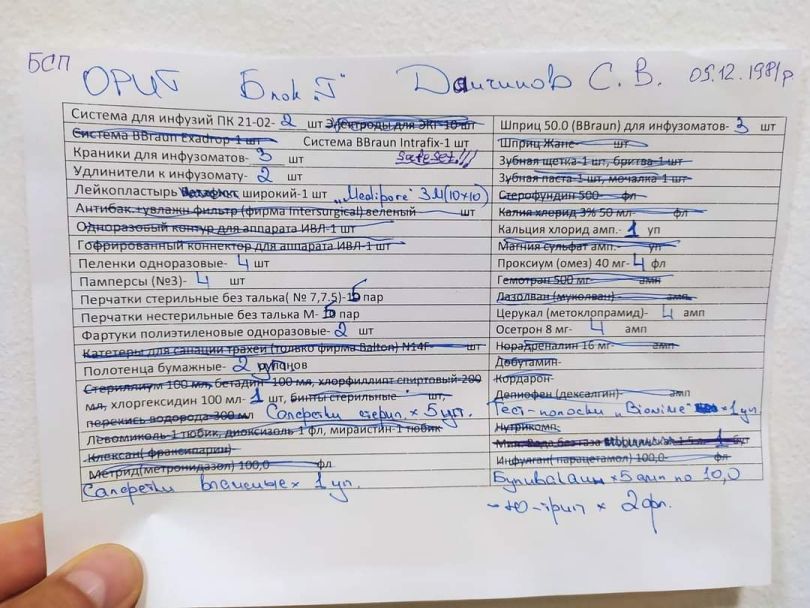 БСП
ОРИТ Блок „Г" Данчинов С. В. 05.12.1981г
Система для инфузий ПК 21-02- 2 шт Электроды для ЭКГ 10 шт
Система BBraun Exadrop-1 шт Система BBraun Intrafix-1 шт
Краники для инфузоматов- 3 шт safeset!!!
Удлинители к инфузомату- 2 шт
Лейкопластырь широкий-1 шт „Medipore" 3М(10×10)
Антибак.+увлажн фильтр (фирма Intersurgical) зеленый шт
Одноразовый контур для аппарата ИВЛ-1 шт
Гофрированный коннектор для аппарата ИВЛ-1 шт
Пеленки одноразовые- 4 шт
Памперсы (№3)- 4 шт
Перчатки стерильные без талька( № 7,7.5)- 5 пар
Перчатки нестерильные без талька М- 5 пар
Фартуки полиэтиленовые одноразовые- 2 шт
Катетеры для санации трахеи (только фирма Balton) N14F- шт
Полотенца бумажные- 2 рулонов
Стериллиум 100 мл, бетадин 100 мл, хлорфиллипт спиртовый 200
мл, хлоргексидин 100 мл- 1 шт, бинты стерильные шт,
перекись водорода 300 мл Салфетки стерил. × 5 уп.
Левомиколь 1 тюбик, диоксизоль 1 фл, мирамистин 1 тюбик
Клексан( фраксипарин)
Метрид(метронидазол) 100,0 фл
Салфетки влажные × 1 уп.
Шприц 50.0 (BBraun) для инфузоматов- 3 шт
Шприц Жане- шт
Зубная щетка-1 шт, бритва-1 шт
Зубная паста-1 шт, мочалка 1 шт
Стерофундин 500- фл
Калия хлорид 3% 50 мл- фл
Кальция хлорид амп.- 1 уп
Магния сульфат амп.- уп
Проксиум (омез) 40 мг- 4 фл
Гемотран 500 мг- амп
Лазолван (муколван) - амп
Церукал (метоклопрамид)- 4 амп
Осетрон 8 мг- 4 амп
Норадреналин 16 мг- амп
Добутамин-
Кордарон-
Депиофен (дексалгин)- амп
Тест-полоски „Bionime" × 1 уп.
Нутрикомп
Мин. Вода без газа 1.5 л. 1 бут
Инфулган( парацетамол) 100,0- фл
Бупивакаин × 5 амп по 10,0
× 2 фл.